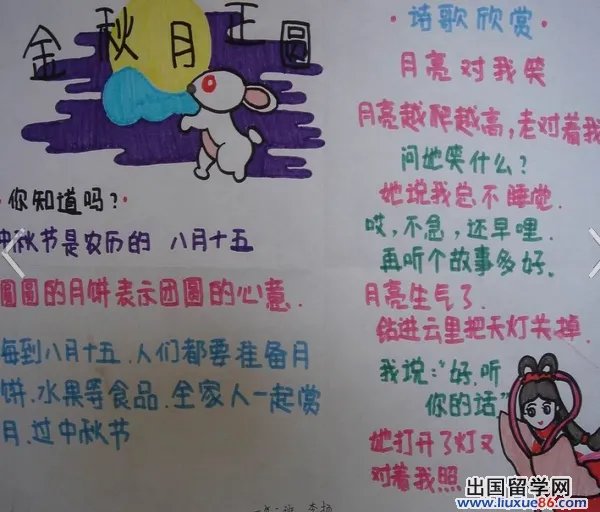 金秋月正圆
·你知道吗？·
中秋节是农历的 八月十五
圆圆的月饼表示团圆的心意.
每到八月十五.人们都要准备月
饼.水果等食品.全家人一起赏
月.过中秋节
·诗歌欣赏·
月亮对我笑
月亮越爬越高,老对着我
问她笑什么?
她说我总不睡觉.
哎,不急,还早哩.
再听个故事多好.
月亮生气了.
钻进云里把天灯关掉.
我说:“好,听
你的话,”
她打开了灯又
对着我照
出国留学网
www.liuxue86.com